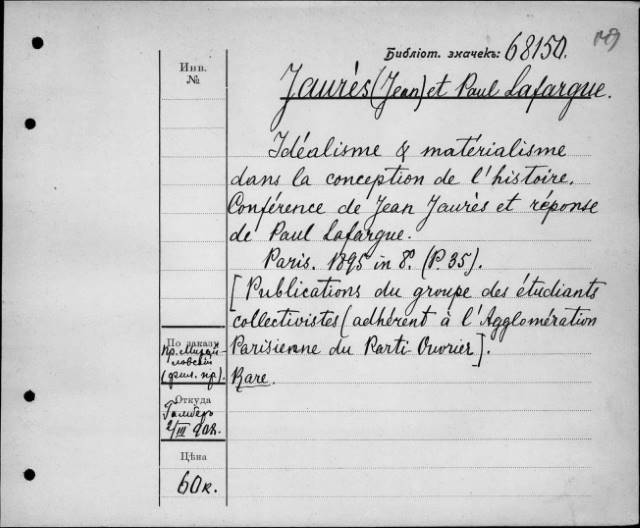 Библіот. значекъ: 68150.
Инв.
№
Jaurès (Jean) et Paul Lafargue.
Idéalisme & matérialisme
dans la conception de l'histoire.
Conférence de Jean Jaurès et réponse
de Paul Lafargue.
Paris. 1895 in 8º. (P. 35).
[Publications du groupe des étudiants
collectivistes (adhérent à l'Agglomération
Parisienne du Parti Ouvrier].
Rare.
По заказу
пр. Михай-
ловскій
Откуда
Цѣна
60 к.